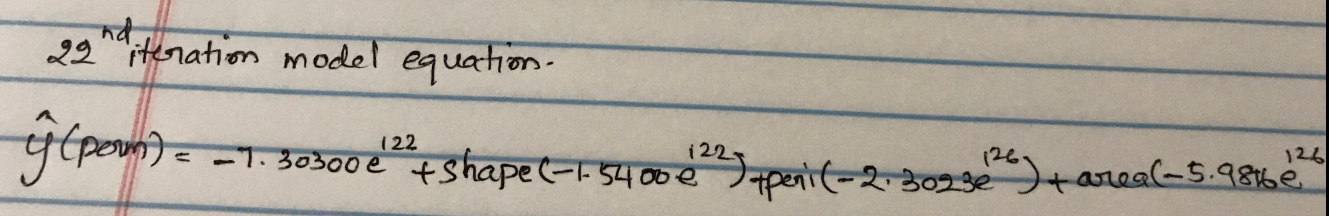 22nd iteration model equation.
ŷ(perm) = -7.30300e^122 + shape(-1.5400e^122) + peri(-2.3023e^126) + area(-5.9816e^126